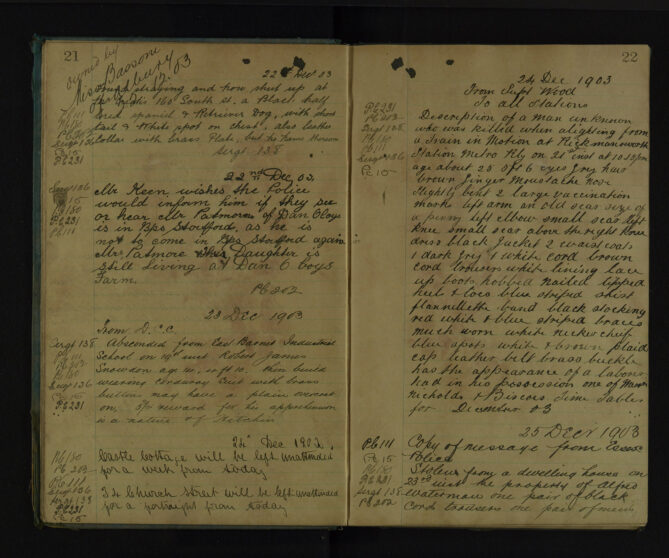 21
owned by
Miss Bassom
22nd Dec 03
found straying and now shut up at
South St. a Black half
bred spaniel & Retriever Dog, with short
tail & White spot on chest, also leather
Collar with brass Plate, but no Name thereon
Sergt 138
PC 111
Pb 180
Sergt 136
PC 15
Pb 231
22nd Dec 03.
Mr Keen wishes the Police
would inform him if they see
or hear Mr Patmore of Dan O'Coys
is in Bps Stortford, as he is
not to come in Bps Stortford again
Mr Patmore Daughter is
still living at Dan O Coys
Farm.
Pb 202
Sergt 136
Pb 180
Pb 231
Pb 111
23 Dec 1903
from D.C.C.
Absconded from East Barnet Industrial
School on 19th inst Robert James
Snowdon age 14, thin build
wearing corduroy suit with brass
buttons may have a plain overcoat
on, reward for his apprehension
is a native of Hitchin
Sergt 138
PC 111
Pb 180
Sergt 136
PC 15
Pb 231
24th Dec 1903.
Castle Cottage will be left unattended
for a week from today
34 Church Street will be left unattended
for a fortnight from today
Pb 180
Pb 202
Pb 111
Sergt 136
Sergt 138
Pb 231
PC 15
22
24 Dec 1903
From Supt Wood
To all Stations
Description of a man unknown
who was killed when alighting from
a train in Motion at Rickmansworth
Station Metro Rly on 21st inst at 10.13 pm
age about 25 5ft 6 eyes Grey hair
brown Ginger Moustache nose
slightly bent 2 large vaccination
marks left arm an old scar size of
a penny left elbow small scar left
knee small scar above the right knee
dress black Jacket 2 waistcoats
1 dark Grey 1 white cord brown
cord trousers white lining lace
up boots hobbed nailed tipped
heels & toes blue striped shirt
flannellette band black stocking
red white & blue striped braces
much worn white neckerchief
blue spots white & brown plaid
cap leather belt brass buckle
has the appearance of a labourer
had in his possession one of
Nicholds & Biscoes Time Tables
for December 03
Pb 231
Pb 202
Sergt 138
Pb 180
Pb 111
Sergt 136
PC 15
25 Decr 1903
Copy of message from Essex
Police
Stolen from a dwelling house on
23rd inst the property of Alfred
Waterman one pair of black
Cord trousers one pair of mens
Pb 111
PC 15
Pb 180
Pb 231
Sergt 138
Pb 202